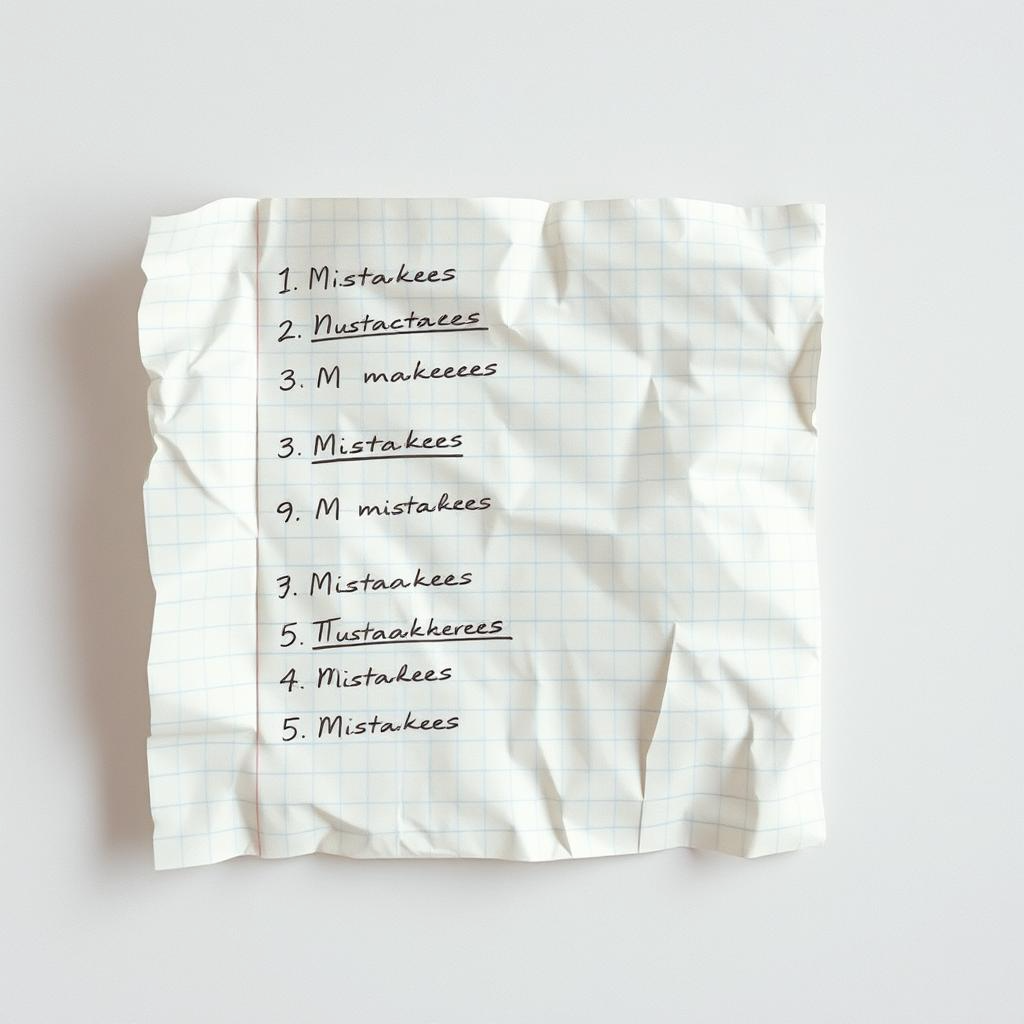 1. Mistakees
2. Nustactaces
3. M makeeees
3. Mistakees
9. M mistakees
3. Mistaakees
5. Tustaakkerees
4. Mistakees
5. Mistakees